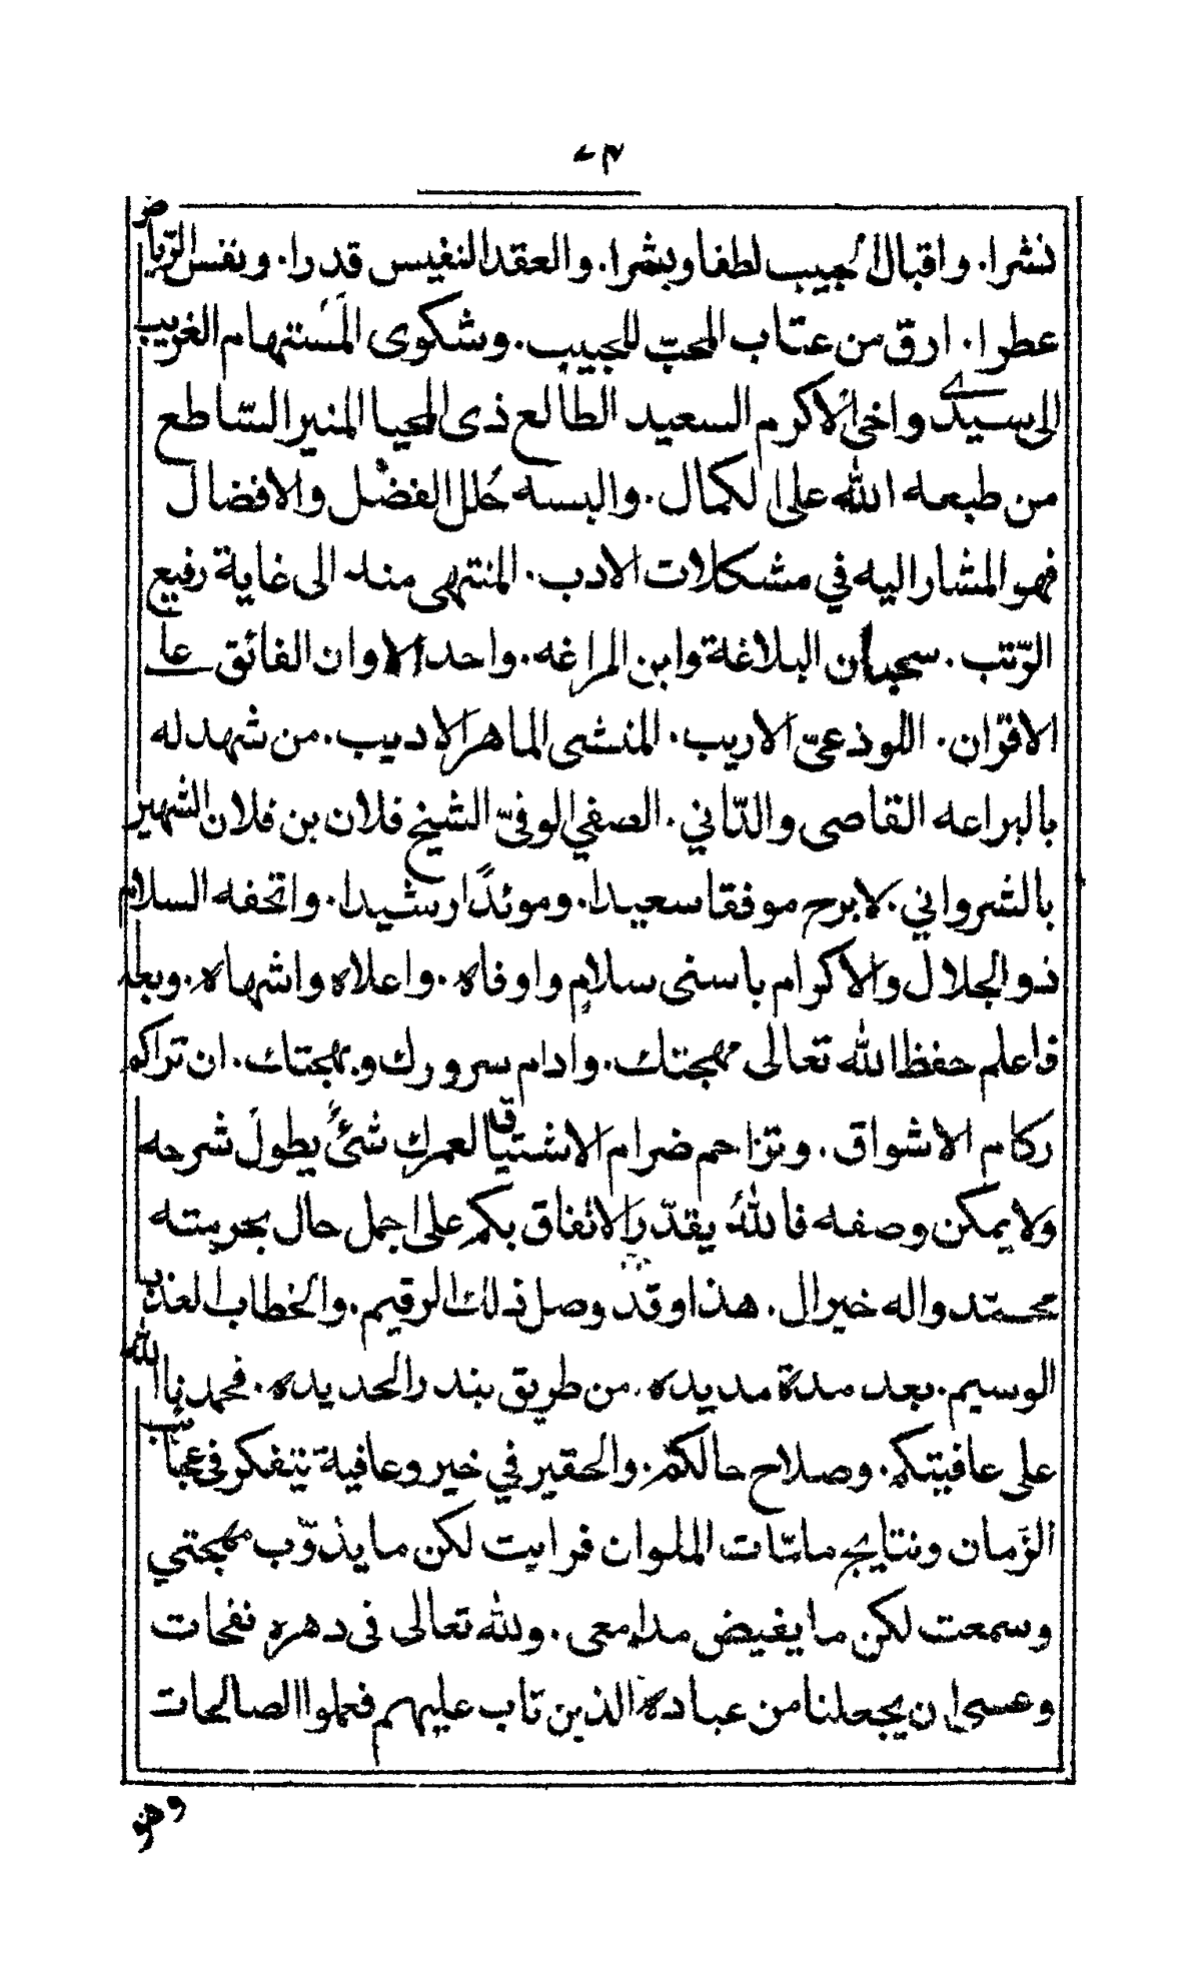 ٧٣
نشرا. واقبال الحبيب لطفا وبشرا. والعقد النفيس قدرا. ونفس الرّياض
عطرا. ارق من عتاب المحبّ للحبيب. وشكوى المَستَهام الغريب
الى سيدي واخى الاكرم السعيد الطالع ذى المحيا المنير السّاطع
من طبعه الله على الكمال. والبسه حُلل الفضل والافضال
فهو المشار اليه في مشكلات الادب. المنتهى منه الى غاية رفيع
الرّتب. سحبان البلاغة وابن المراغه. واحد الاوان الفائق على
الاقرّان. اللوذعىّ الاريب. المنشى الماهر الاديب. من شهد له
بالبراعه القاصى والدّاني. الصفي الوفىّ الشيخ فلان بن فلان الشهير
بالشرواني. لا برح موفقا سعيدا. وموئدًا رشيدا. واتحفه السلام
ذو الجلال والاكرام باسنى سلام واوفاه. واعلاه واشهاه. وبعد
فاعلم حفظ الله تعالى مهجتك. وادام سرورك وبهجتك. ان تراكم
ركام الاشواق. وتزاحم ضرام الاشتياق لعمرك شئ يطول شرحه
ولا يمكن وصفه فاللهُ يقدّر الاتفاق بكم على اجمل حال بحرمته
محمّد واله خير ال. هذا وقد وصل ذلك الرقيم. والخطاب العذب
الوسيم. بعد مدة مديده. من طريق بندر الحديده. فحمدنا الله
على عافيتكم. وصلاح حالكم. والحقير في خير وعافية يتفكر فى عجائب
الزَمان ونتايج ماسّات الملوان فرايت لكن ما يذوّب مهجتي
وسمعت لكن ما يفيض مدامعى. ولله تعالى فى دهره نفحات
وعسى ان يجعلنا من عباده الذين تاب عليهم فعملوا الصالحات
وهو